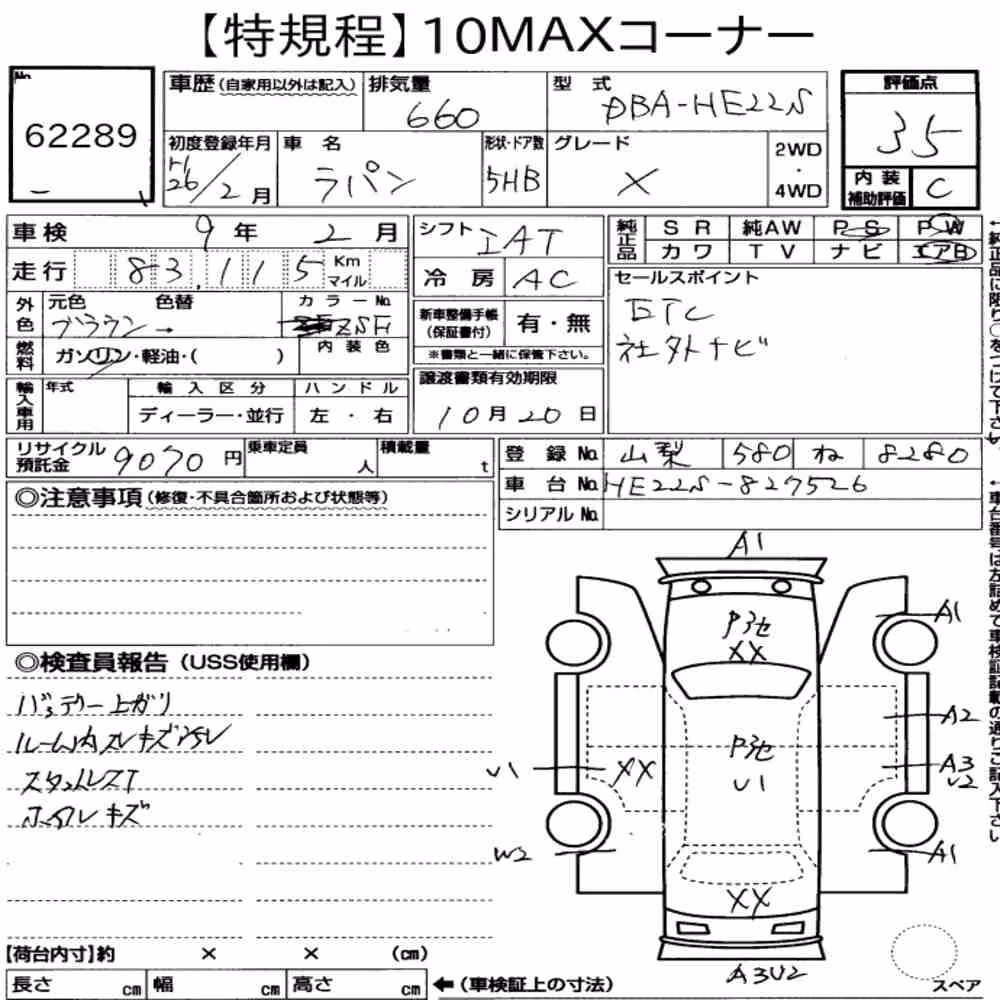 【特規程】10MAXコーナー
No.
62289
車歴(自家用以外は記入)
排気量
660
型式
DBA-HE22S
評価点
35
初度登録年月
H26/2月
車名
ラパン
形状・ドア数
5HB
グレード
X
2WD
・
4WD
内装
補助評価
C
車検 9年 2月
走行 83,115 Km
マイル
シフト IAT
冷房 AC
純正品
SR 純AW PS PW
カワ TV ナビ エアB
外色
元色 色替 カラーNo.
ブラウン→ ZSH
燃料
ガソリン・軽油・( )
内装色
新車整備手帳
(保証書付)
有・無
※書類と一緒に保管下さい。
セールスポイント
ETC
社外ナビ
輸入車用
年式 輸入区分 ハンドル
ディーラー・並行 左・右
譲渡書類有効期限
10月20日
リサイクル
預託金 9070円
乗車定員 人
積載量 t
登録No. 山梨 580 ね 8280
車台No. HE22S-827526
シリアルNo.
◎注意事項(修復・不具合箇所および状態等)
◎検査員報告(USS使用欄)
バッテリー上がり
ルーム内スレキズ汚レ
スタットレスT
ホイルキズ
A1
P3セ
XX
A1
A2
P3セ
U1
U1
XX
A3
U2
W2
A1
XX
A3U2
スペア
【荷台内寸】約 × × (cm)
長さ cm 幅 cm 高さ cm ←(車検証上の寸法)
←純正品に限り○をつけて下さい。
←車台番号は左詰めで車検証記載の通りご記入下さい